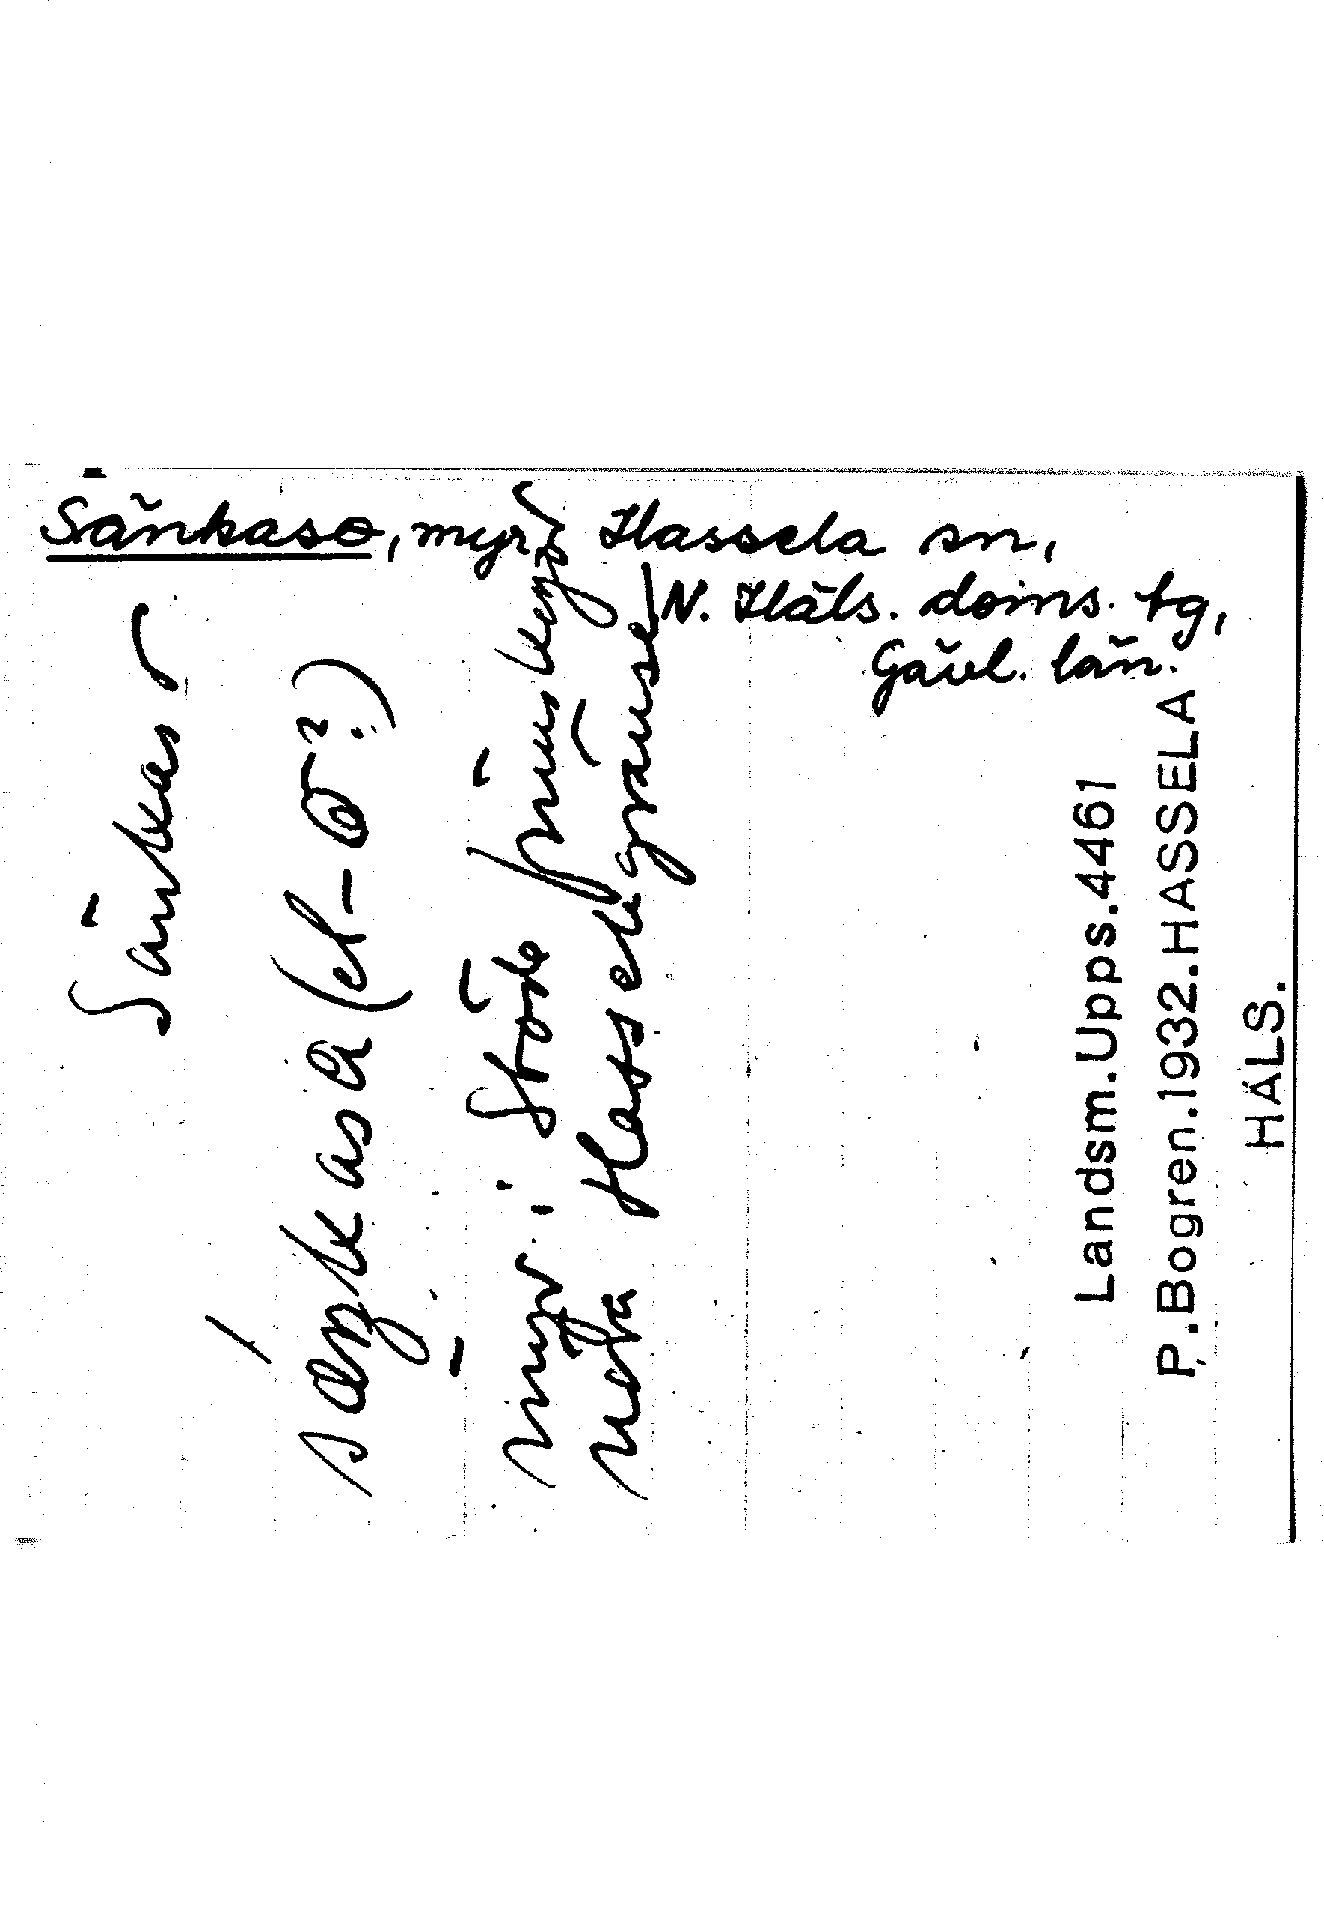 Sänkaso, myr, Hassela sn,
N. Häls. doms. tg,
Gävl. län.
Sänkas
sæŋkasa (el -
myr i Stöde
nära Hasselagränse
Landsm.Upps.4461
P.Bogren.1932.HASSELA
HÄLS.